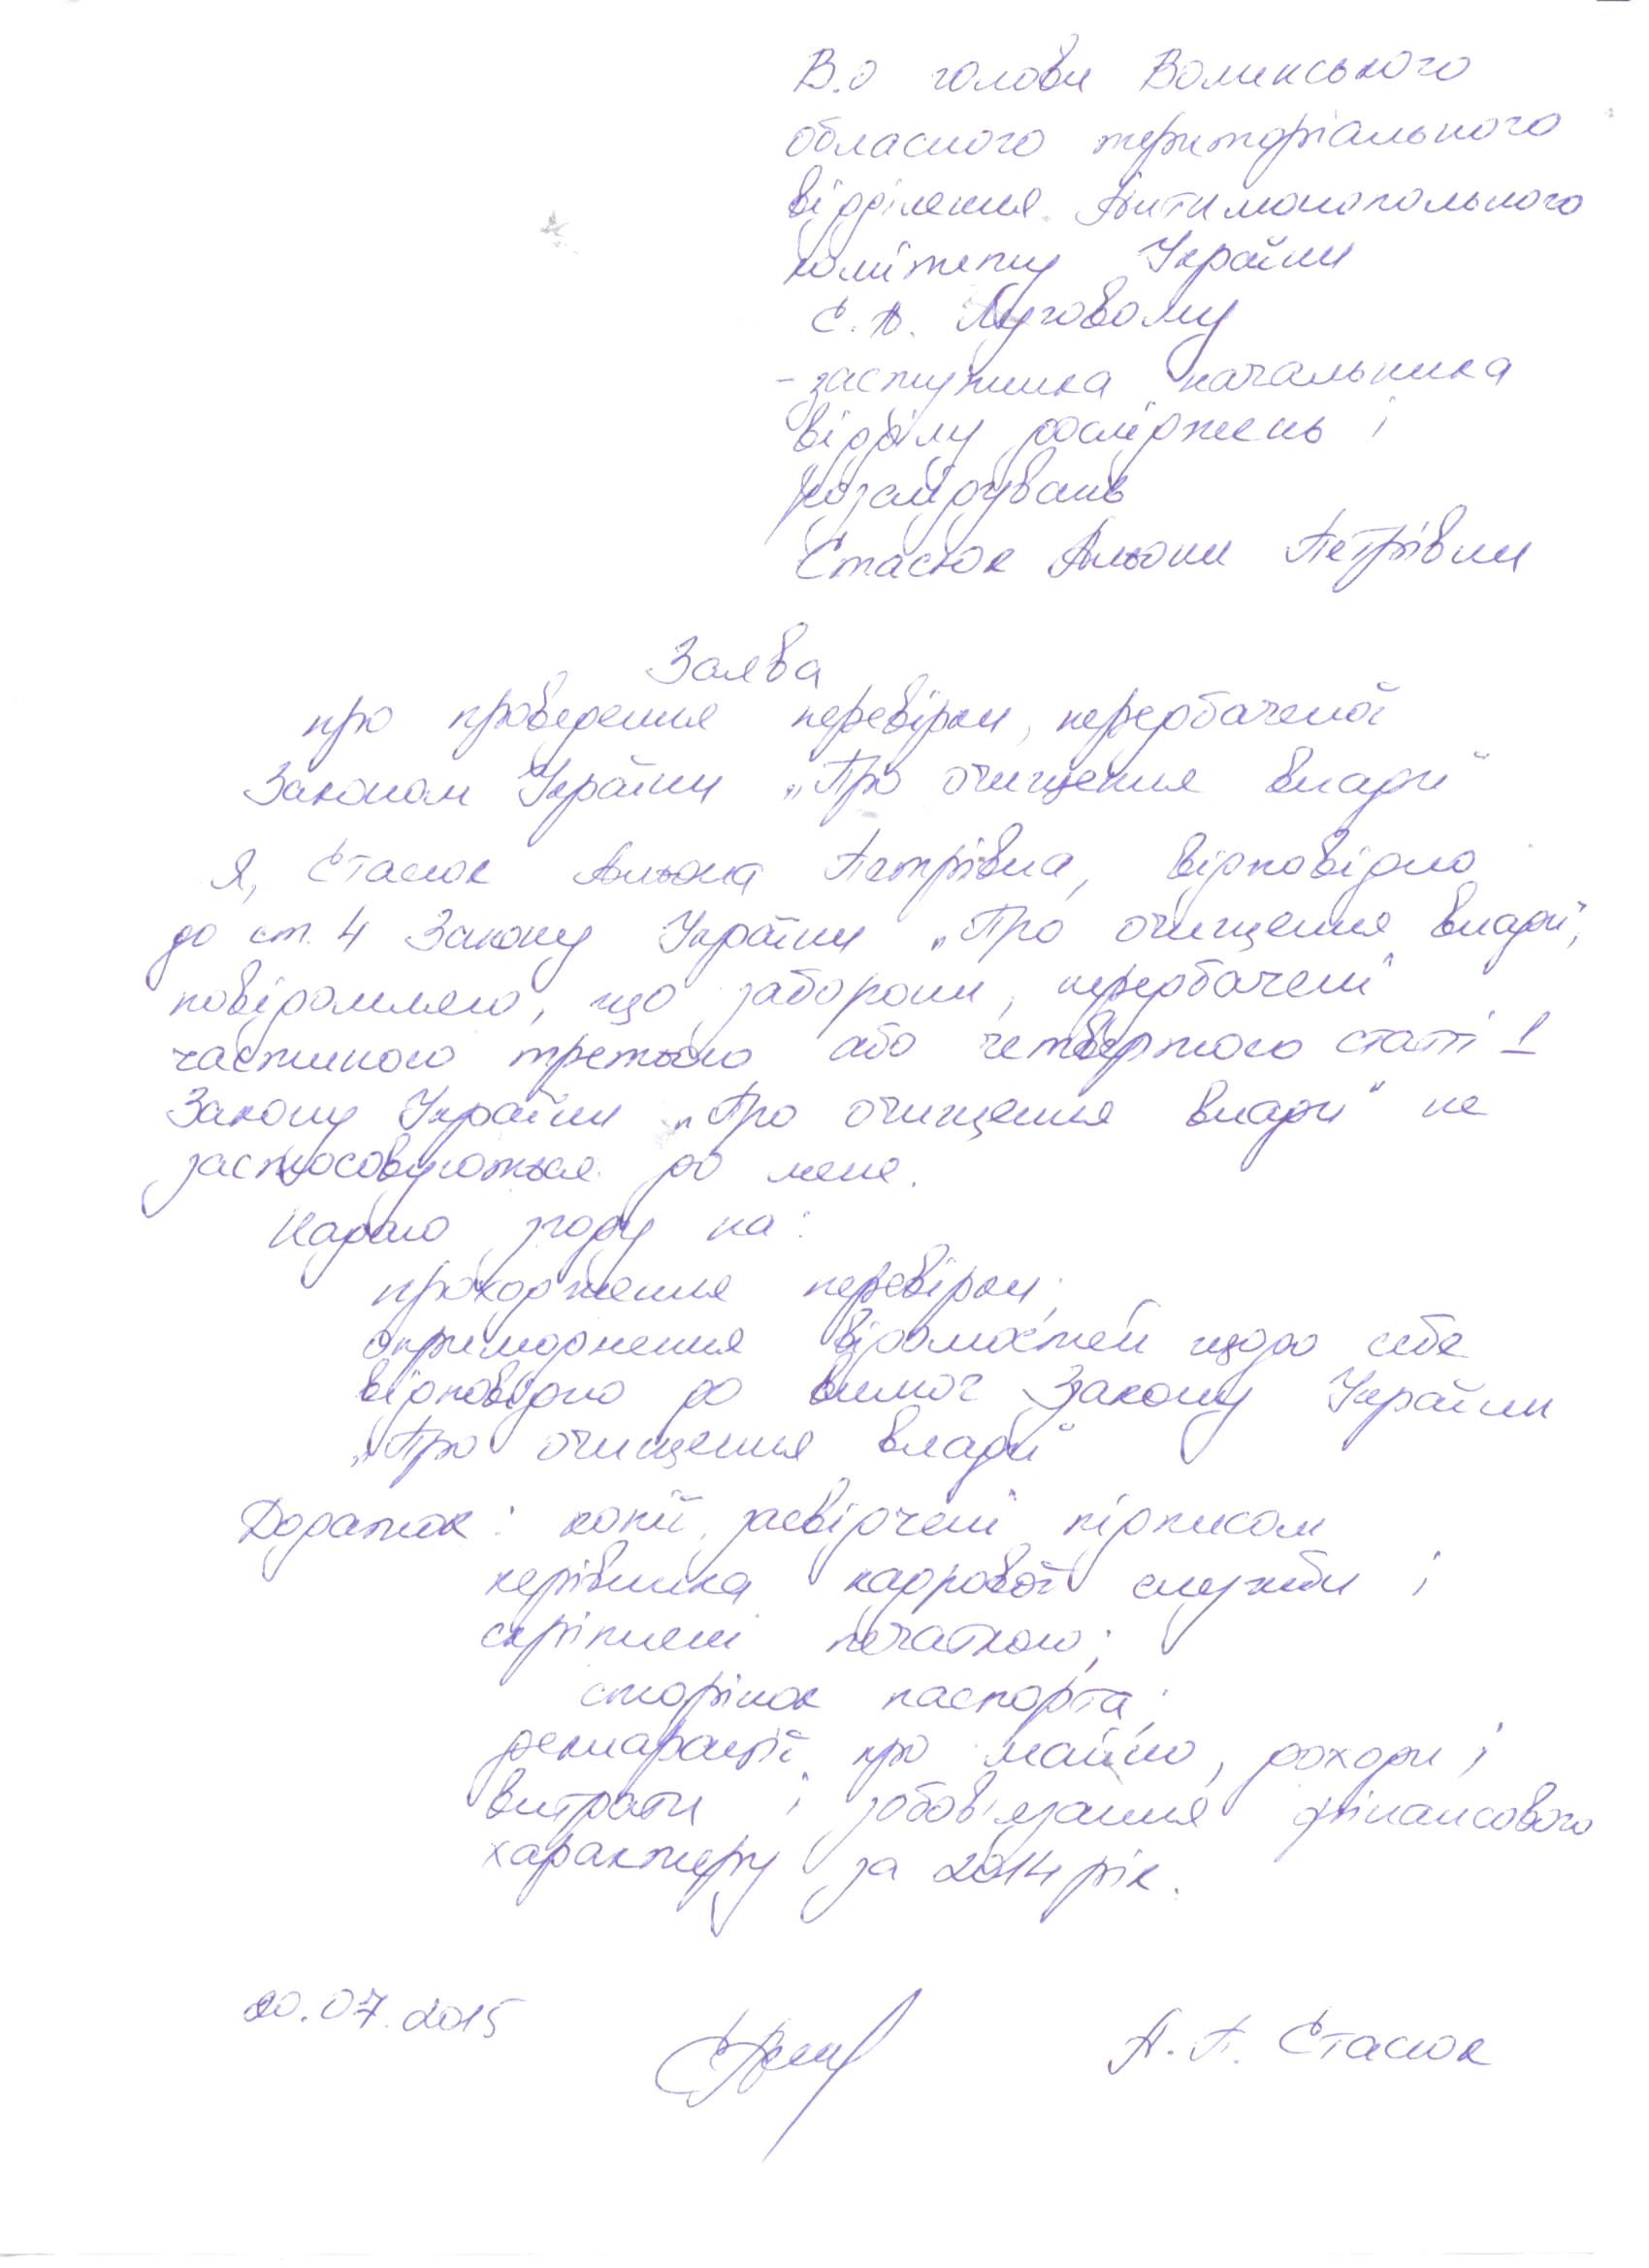 В.о голови Волинського
обласного територіального
відділення Антимонопольного
комітету України
С.А. Луговому
- заступника начальника
відділу досліджень і
розслідувань
Стасюк Альони Петрівни
Заява
про проведення перевірки, передбаченої
Законом України „Про очищення влади"
Я, Стасюк Альона Петрівна, відповідно
до ст. 4 Закону України „Про очищення влади",
повідомляю, що заборони, передбачені
частиною третьою або четвертою статті 1
Закону України „Про очищення влади" не
застосовуються до мене.
Надаю згоду на:
проходження перевірки;
оприлюднення відомостей щодо себе
відповідно до вимог Закону України
„Про очищення влади"
Додаток: копії, засвідчені підписом
керівника кадрової служби і
скріплені печаткою;
сторінок паспорта;
декларації про майно, доходи і
витрати і зобов'язання фінансового
характеру за 2014 рік.
20.07.2015
А.П. Стасюк